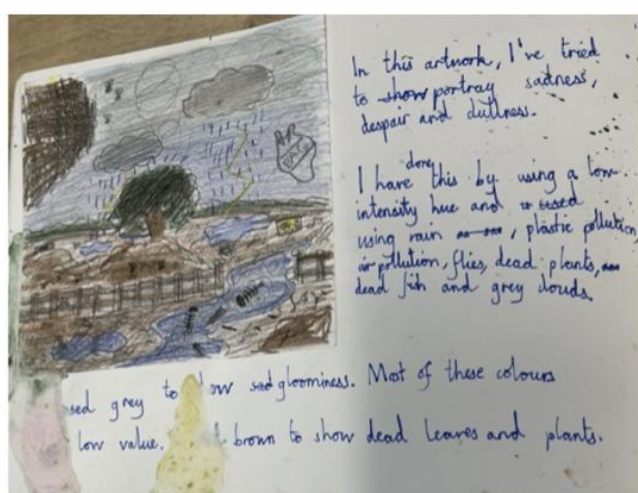 In this artwork, I've tried
to show portray sadness,
despair and dullness.
I have done this by using a low
intensity hue and used
using rain, plastic pollution
pollution, flies, dead plants,
dead fish and grey clouds.
sed grey to ow sad gloominess. Most of these colours
low value. brown to show dead leaves and plants.